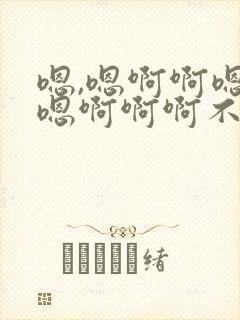 嗯,嗯啊啊嗯
嗯啊啊啊不
绪